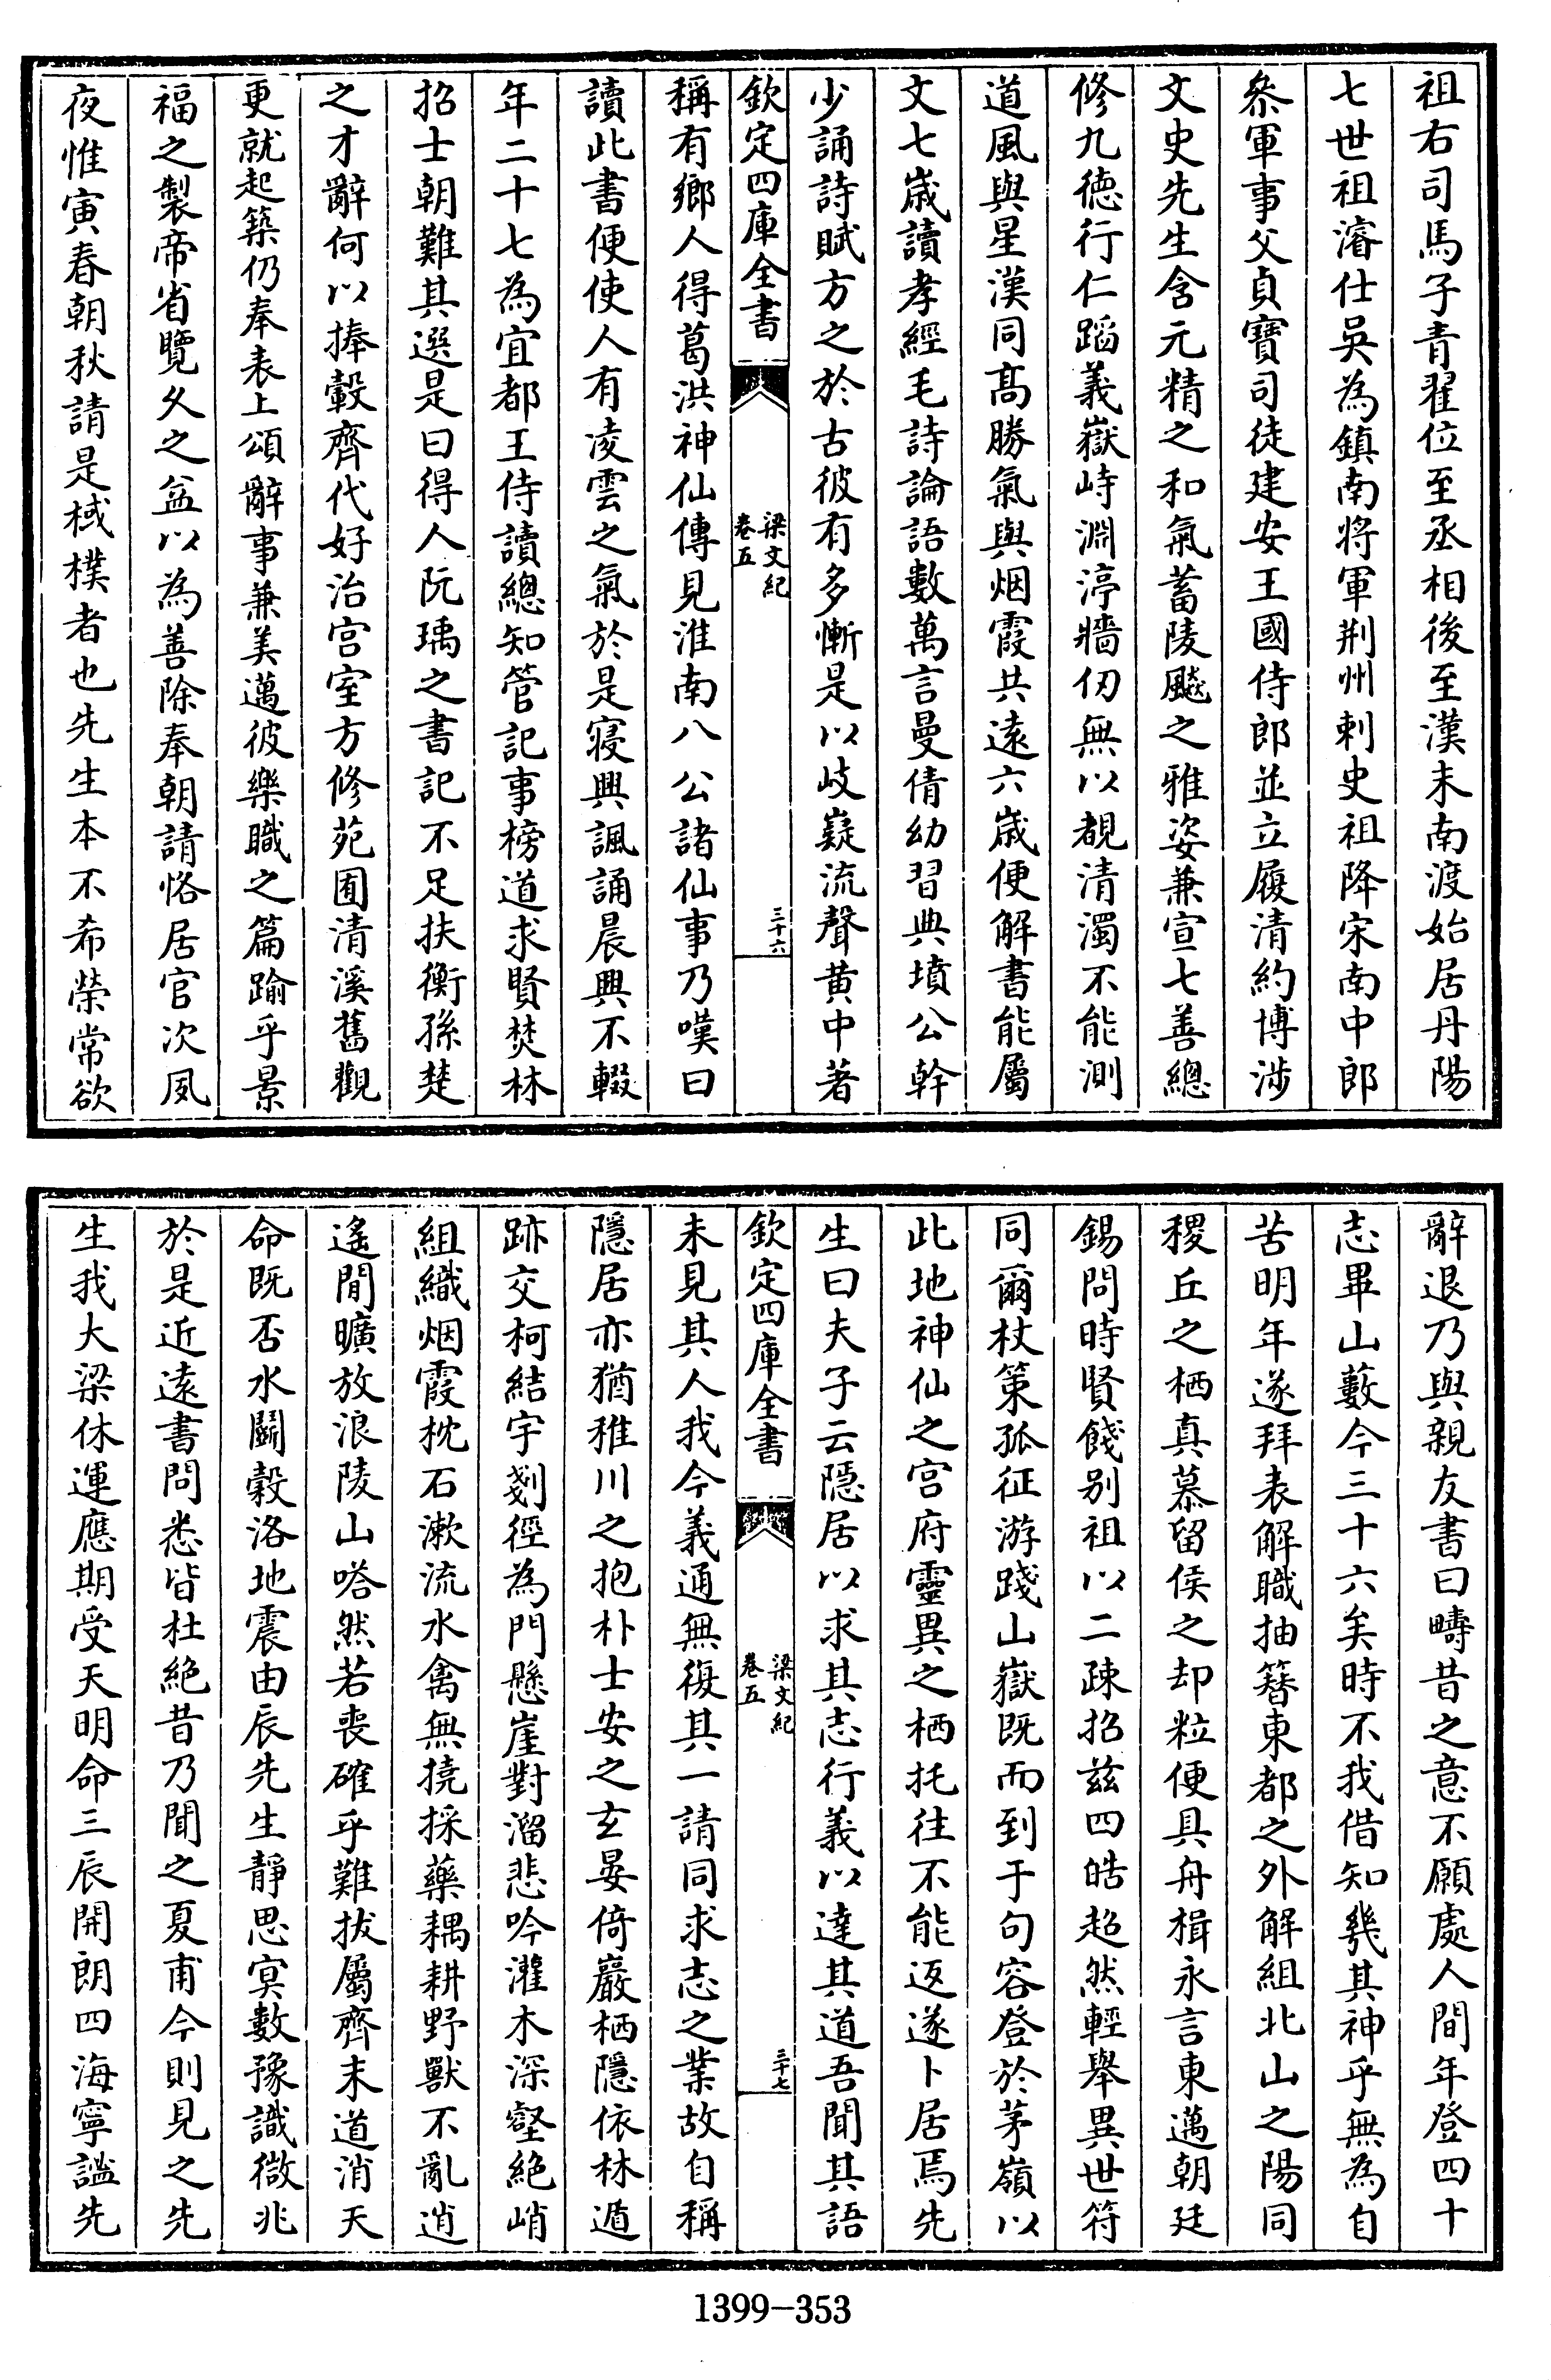 祖右司馬子青翟位至丞相後至漢末南渡始居丹陽
七世祖濬仕吳為鎮南將軍荆州刺史祖隆宋南中郎
叅軍事父貞寶司徒建安王國侍郎並立履清約博涉
文史先生含元精之和氣蓄陵颷之雅姿兼宣七善總
修九徳行仁蹈義嶽峙淵渟牆仞無以覩清濁不能測
道風與星漢同髙勝氣與烟霞共逺六歳便解書能屬
文七歳讀孝經毛詩論語數萬言曼倩幼習典墳公幹
少誦詩賦方之於古彼有多慚是以岐嶷流聲黄中著
欽定四庫全書
梁文紀
卷五
三十六
稱有鄉人得葛洪神仙傳見淮南八公諸仙事乃嘆曰
讀此書便使人有凌雲之氣於是寝興諷誦晨興不輟
年二十七為宜都王侍讀總知管記事榜道求賢焚林
招士朝難其選是曰得人阮瑀之書記不足扶衡孫楚
之才辭何以捧轂齊代好治宫室方修苑囿清溪舊觀
更就起築仍奉表上頌辭事兼美邁彼樂職之篇踰乎景
福之製帝省覽久之益以為善除奉朝請恪居官次夙
夜惟寅春朝秋請是棫樸者也先生本不希榮常欲
辭退乃與親友書曰疇昔之意不願處人間年登四十
志畢山藪今三十六矣時不我借知幾其神乎無為自
苦明年遂拜表解職抽簮東都之外解組北山之陽同
稷丘之栖真慕留侯之却粒便具舟楫永言東邁朝廷
錫問時賢餞别祖以二疎招兹四皓超然輕舉異世符
同爾杖策孤征游踐山嶽既而到于句容登於茅嶺以
此地神仙之宫府靈異之栖托往不能返遂卜居焉先
生曰夫子云隠居以求其志行義以達其道吾聞其語
欽定四庫全書
梁文紀
卷五
三十七
未見其人我今義通無復其一請同求志之業故自稱
隠居亦猶稚川之抱朴士安之玄晏倚巖栖隠依林遁
跡交柯結宇剗徑為門懸崖對溜悲吟灌木深壑絶峭
組織烟霞枕石漱流水禽無撓採藥耦耕野獸不亂逍
遙閒曠放浪陵山嗒然若喪確乎難拔屬齊末道消天
命既否水鬭榖洛地震由辰先生靜思㝠數豫識微兆
於是近逺書問悉皆杜絶昔乃聞之夏甫今則見之先
生我大梁休運應期受天明命三辰開朗四海寧謐先
1399-353